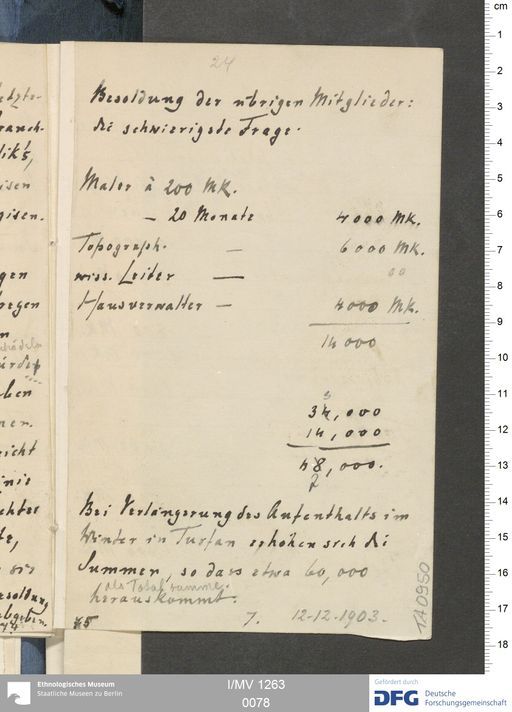 24
Besoldung der übrigen Mitglieder:
die schwierigste Frage.
Maler à 200 MK.
— 20 Monate 4000 MK.
Topograph. — 6000 MK.
wiss. Leiter — 00
Hausverwalter — 4000 MK.
14000
34,000
14,000
48,000.
2
Bei Verlängerung des Aufenthalts im
Winter in Turfan erhöhen sich die
Summen, so dass etwa 60,000
als Totalsumme
herauskommt.
7. 12-12-1903.
TA 0950
cm
1
2
3
4
5
6
7
8
9
10
11
12
13
14
15
16
17
18
Ethnologisches Museum
Staatliche Museen zu Berlin
I/MV 1263
0078
Gefördert durch
DFG Deutsche
Forschungsgemeinschaft